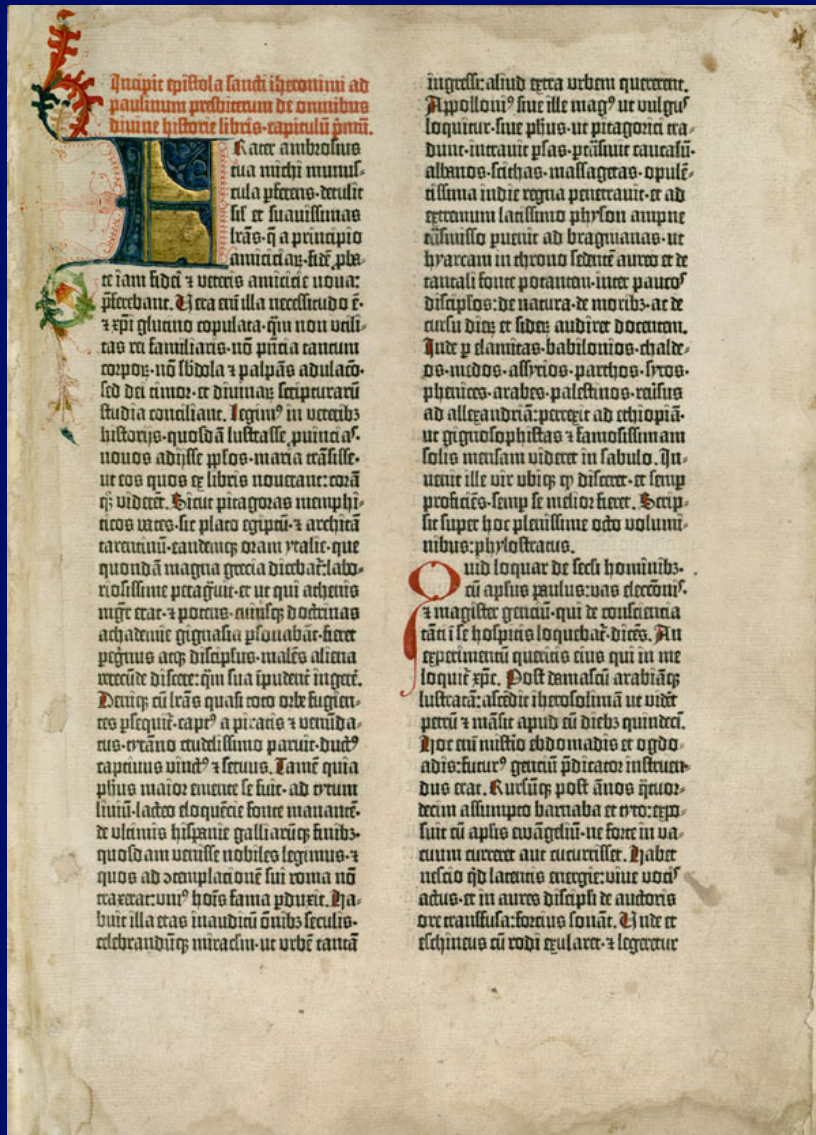 Incipit epistola sancti iheronimi ad
paulinum presbiterum de omnibus
divine historie libris·capitulū p̄mū.
Frater ambrosius
tua michi munus-
cula ꝓferens·detulit
sil̄ et suavissimas
lr̄as·q̄ a principio
amiciciaꝝ·fidē ꝓba-
te iam fidei ⁊ veteris amicicie nova:
p̄ferebant. Vera eni illa necessitudo ē·
⁊ xp̄i glutino copulata·qm̄ non utili-
tas rei familiaris·nō p̄ncia tantum
corpoꝝ·nō sb̄dola ⁊ palpās adulacō·
sed dei timor·et divinaꝝ scripturarū
studia conciliant. Legimꝰ in veteribꝫ
historijs·quosdā lustrasse ꝓvincias·
novos adijsse pp̄los·maria trāsisse·
ut eos quos ex libris noverant: corā
qꝫ viderēt. Sicut pitagoras memphi-
ticos vates·sic plato egiptū·⁊ architā
tarentinū·eandemqꝫ oram ytalie·que
quondā magna grecia dicebat̄: labo-
riosissime peragᷓvit·et ut qui athenis
mgr̄ erat·⁊ potens·cuiusqꝫ doctrinas
achademie gignasia ꝑsonabāt·fieret
peg̓nus atqꝫ discipl̄us·malēs aliena
verecūde discere: qm̄ sua īpudent̄ ingerē.
Deniqꝫ cū lr̄as quasi toto orbe fugien-
tes ꝑsequit̄·captꝰ a piratis ⁊ venūda-
tus·tyrāno crudelissimo paruit·ductꝰ
captivus vinctꝰ ⁊ servus. Tamē quia
ph̄us maior emente se fuit·ad tytum
liviū·lacteo eloquēcie fonte manantē·
de ultimis hispanie galliarūqꝫ finibꝫ·
quosdam venisse nobiles legimus·⁊
quos ad ꝯtemplationē sui roma nō
traxerat: unīꝰ hoīs fama ꝑduxit. Ha-
buit illa etas inauditū ōnibꝫ seculis·
celebrandūqꝫ miraclm̄·ut urbē tantā
ingressi: aliud extra urbem quererent.
Appolloniꝰ sive ille magꝰ ut vulgus
loquitur·sive ph̄us·ut pitagorici tra-
dunt·intravit ꝑsas·ꝑtrāsivit caucasū·
albanos·scithas·massagetas·opulē-
tissima indie regna penetravit·et ad
extremum latissimo physon ampne
trāsmisso ꝑvenit ad bragmanas·ut
hyarcam in throno sedentē aureo et de
tantali fonte potantem·inter paucos
discipl̄os: de natura·de moribꝫ·ac de
cursu dieꝝ et sideꝝ audiret docentem.
Inde ꝑ elamitas·babilonios·chalde-
os·medos·assyrios·parthos·syros·
phenices·arabes·palestinos·reversus
ad allexandriā: perrexit ad ethiopiā·
ut gignosophistas ⁊ famosissimam
solis mensam videret in sabulo. In-
venit ille vir ubiqꝫ qꝫ disceret·et semꝑ
proficiēs·semꝑ se melior fieret. Scrip-
sit super hoc plenissime octo volumi-
nibus: phylostratus.
Quid loquar de secl̄i hominibꝫ·
cū apl̄us paulus: vas eleccōnis·
⁊ magister genciū·qui de consciencia
tāti ī se hospitis loquebat̄·dicēs. An
experimentū queritis eius qui in me
loquit̄ xp̄c. Post damascū arabiāqꝫ
lustratā: ascēdit iherosolimā ut vidēt
petrū ⁊ māsit apud eū diebꝫ quindecī.
Hoc eni misterio ebdomadis et ogdo-
adis: futurꝰ genciū p̄dicator instruen-
dus erat. Rursūqꝫ post ānos q̄tuor-
decim assumpto barnaba et tyto: expo-
suit cū apl̄is ewāgeliū·ne forte in va-
cuum curreret aut cucurrisset. Habet
nescio qd̄ latentis energie: vive vocis
actus·et in aures discipl̄i de auctoris
ore transfusa: forcius sonāt. Unde et
eschineus cū rodi exularet·⁊ legeretur